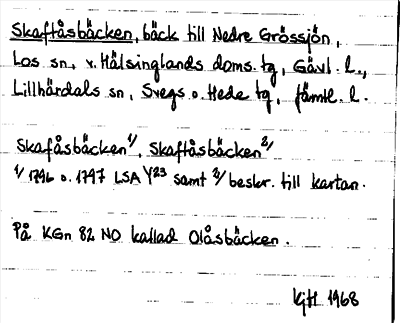 Skaftåsbäcken, bäck till Nedre Grössjön,
Los sn, v. Hälsinglands doms. tg, Gävl. l.,
Lillhärdals sn, Svegs o. Hede tg, Jämtl. l.
Skafåsbäcken 1/, Skaftåsbäcken 2/
1/ 1796 o. 1797 LSA Y23 samt 2/ beskr. till kartan.
På KGn 82 NO kallad Olåsbäcken.
KjH 1968